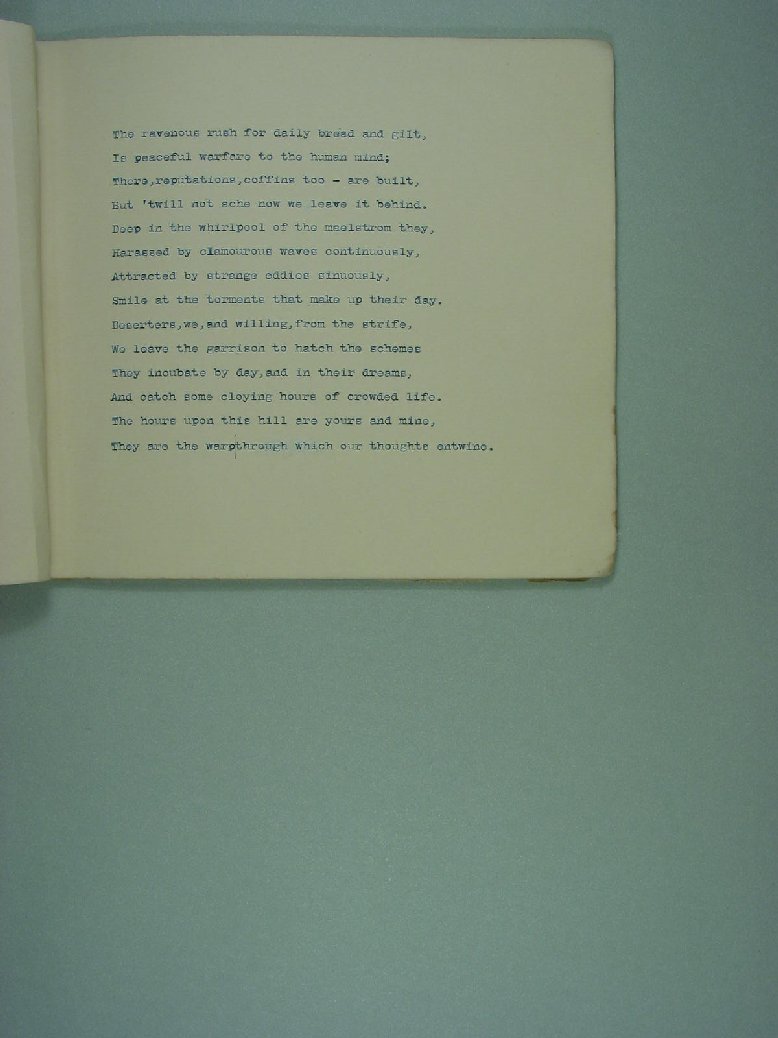 The ravenous rush for daily bread and gilt,
Is peaceful warfare to the human mind;
There,reputations,coffins too - are built,
But 'twill not ache now we leave it behind.
Deep in the whirlpool of the maelstrom they,
Harassed by clamourous waves continuously,
Attracted by strange eddies sinuously,
Smile at the torments that make up their day.
Deserters,we,and willing,from the strife,
We leave the garrison to hatch the schemes
They incubate by day,and in their dreams,
And catch some cloying hours of crowded life.
The hours upon this hill are yours and mine,
They are the warpthrough which our thoughts entwine.